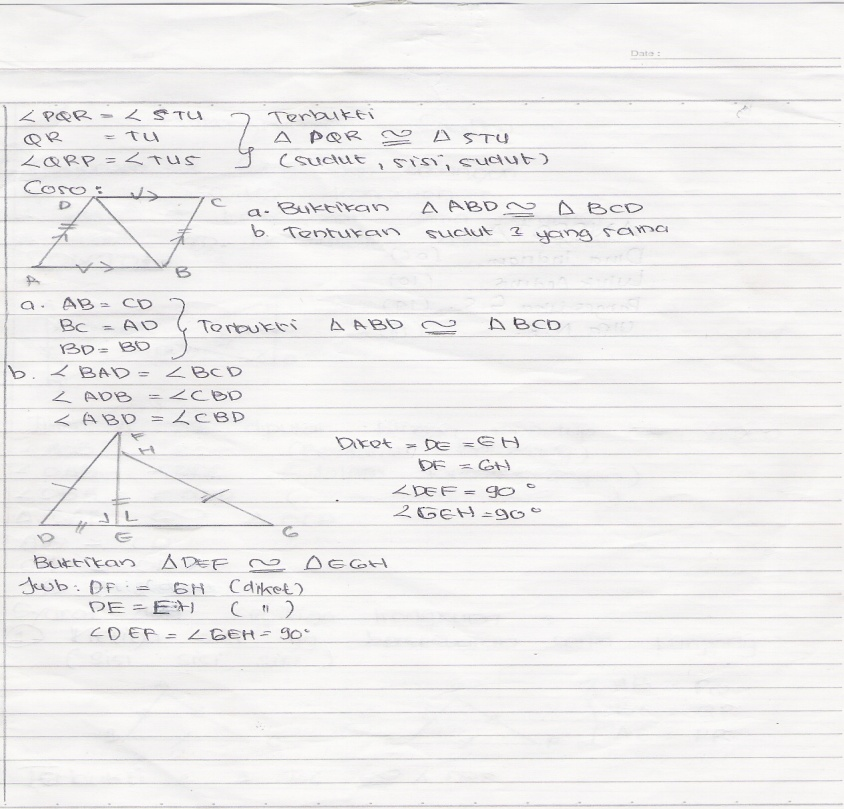 Date :
∠ PQR = ∠ STU } Terbukti
QR = TU } Δ PQR ≅ Δ STU
∠QRP = ∠TUS } (sudut, sisi, sudut)
D C
A B
a. Buktikan Δ ABD ≅ Δ BCD
b. Tentukan sudut 2 yang sama
a. AB = CD
BC = AD } Terbukti Δ ABD ≅ Δ BCD
BD = BD
b. ∠ BAD = ∠BCD
∠ ADB = ∠CBD
∠ ABD = ∠CBD
F
H
D E G
Diket = DE = EH
DF = GH
∠DEF = 90°
∠GEH = 90°
Buktikan ΔDEF ≅ ΔEGH
Jwb : DF = GH (diket)
DE = EH ( " )
∠DEF = ∠GEH = 90°